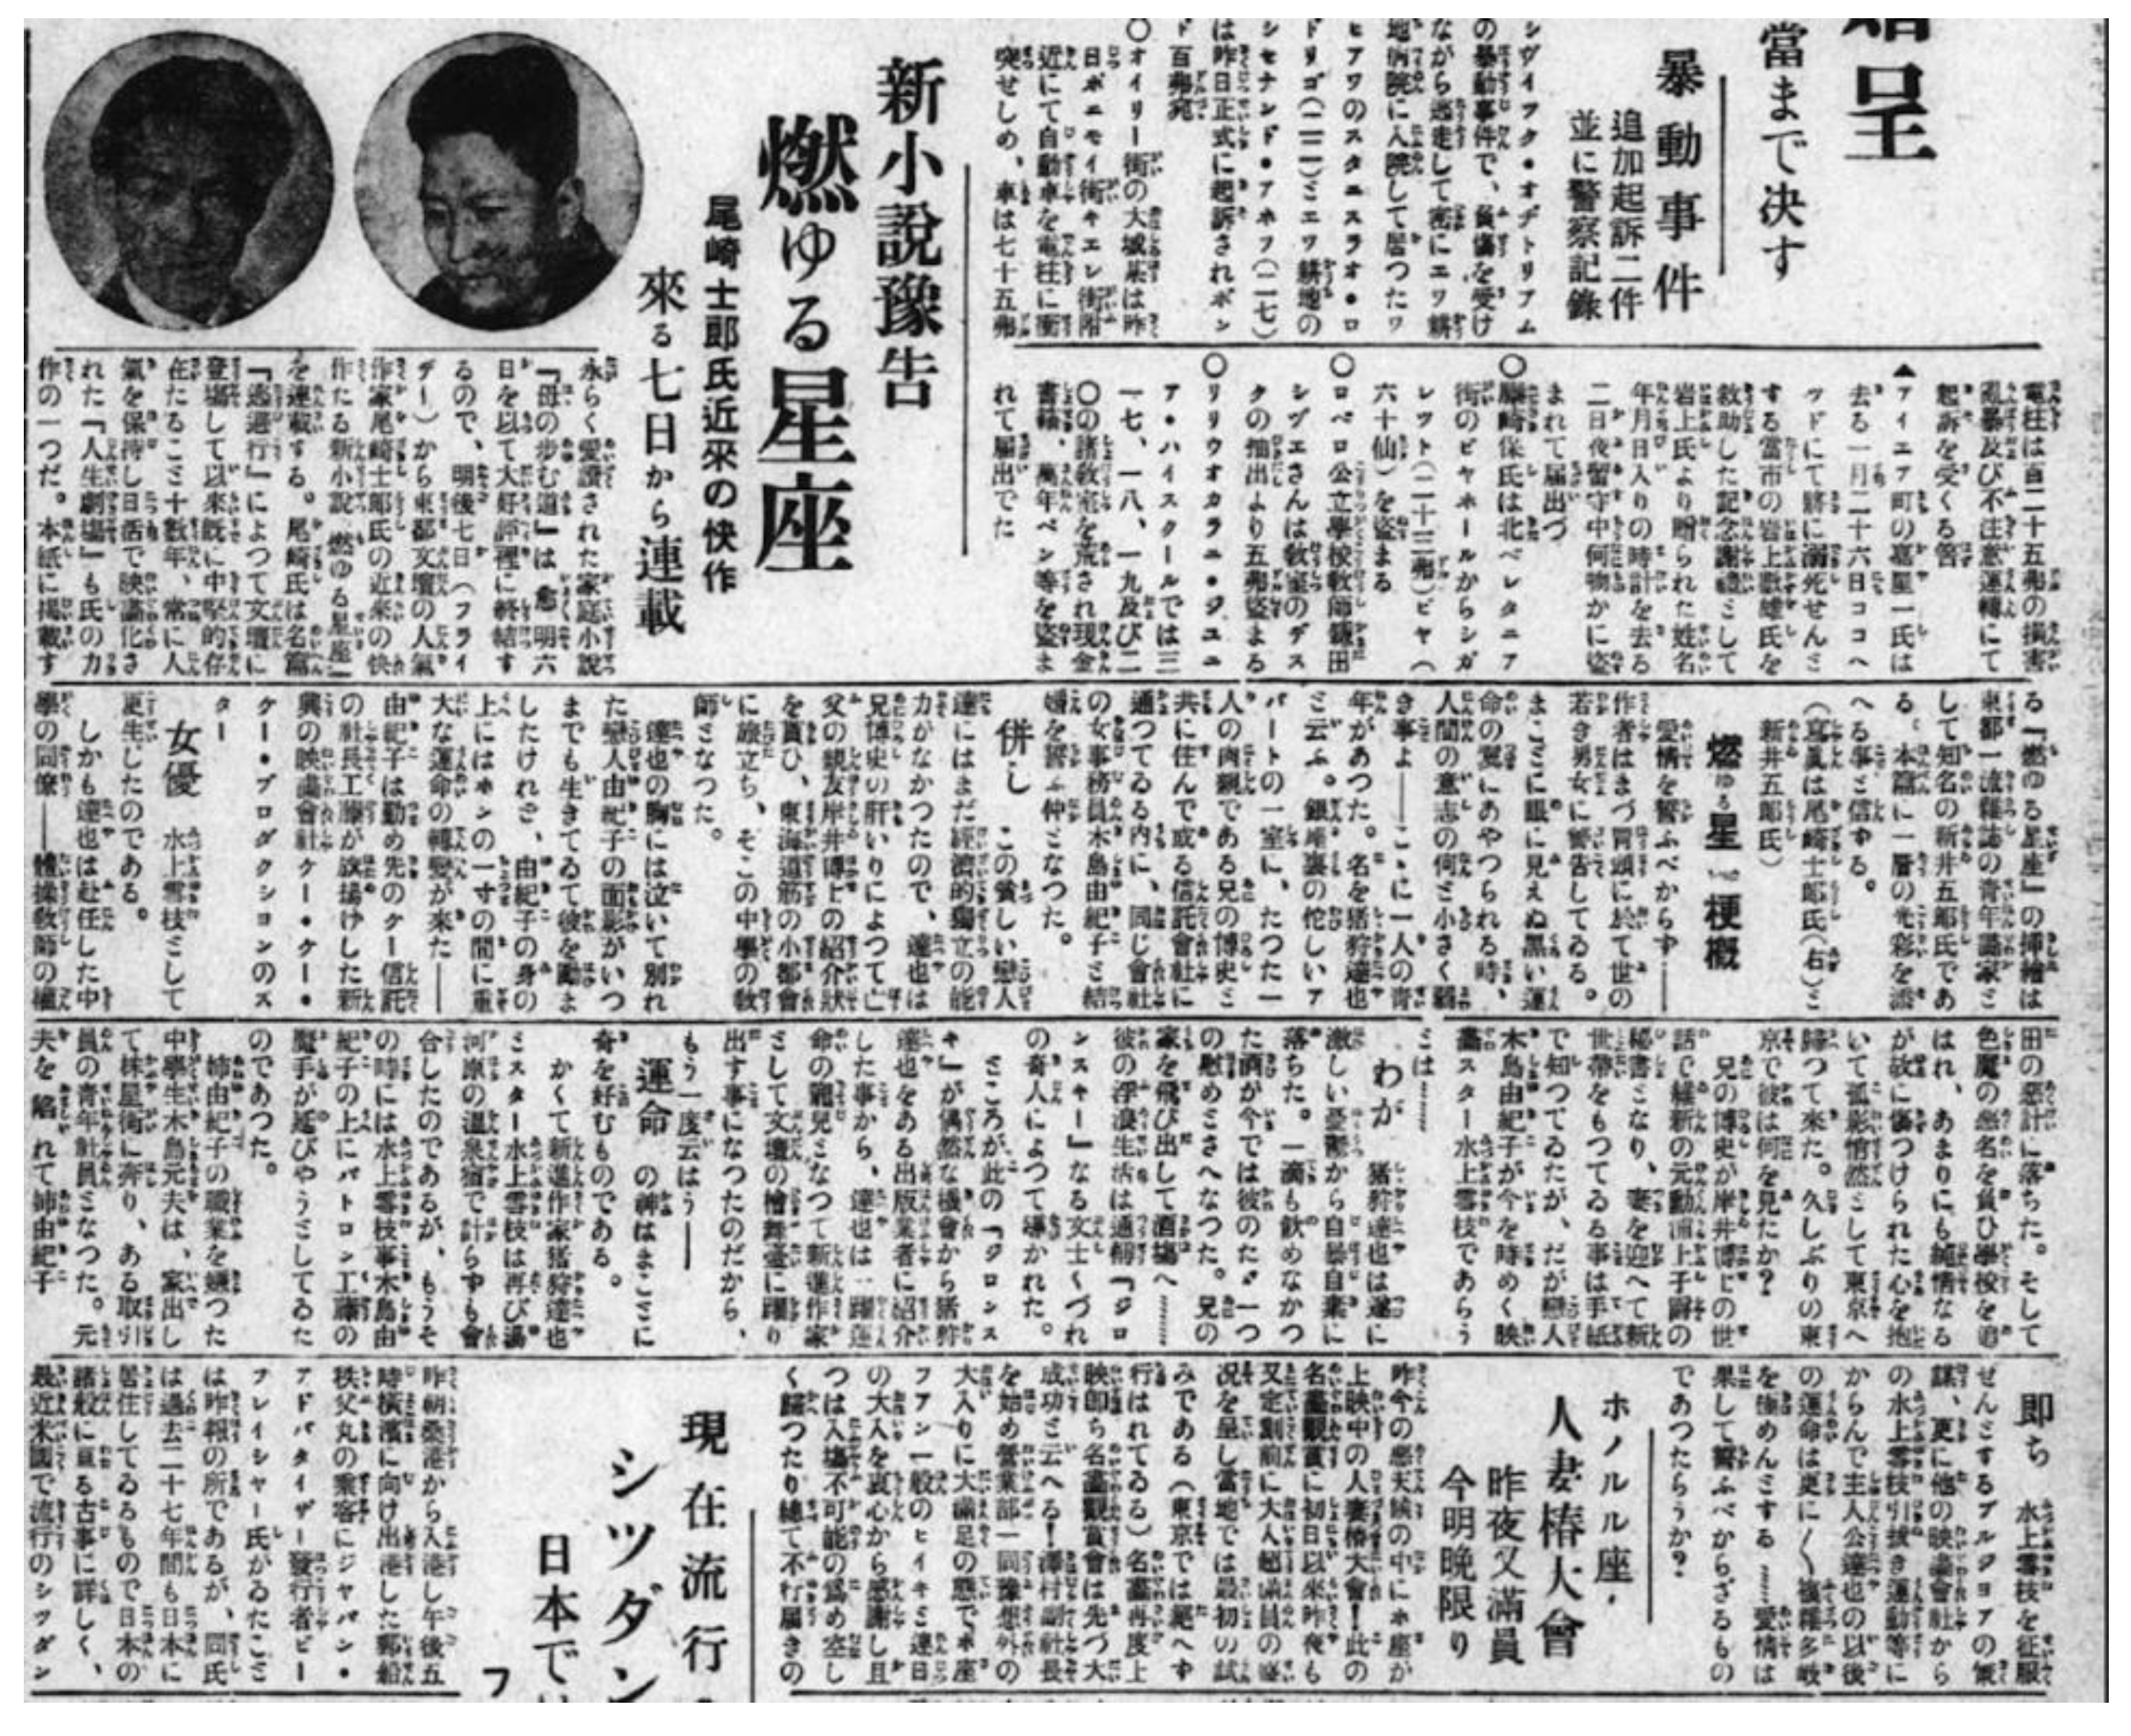 呈
當まで決す
暴動事件
追加起訴二件
並に警察記録
シヴイツク・オデトリアム
の暴動事件で、負傷を受け
ながら逃走して密にエワ耕
地病院に入院して居つたワ
ヒアワのスタニスラオ・ロ
ドリゴ(二二)ミエワ耕地の
シセナンド・アキノ(二七)
は昨日正式に起訴されボン
ド百弗宛
〇オイリー街の大城某は昨
日ボニモイ街キエレ街附
近にて自動車を電柱に衝
突せしめ、車は七十五弗
電柱は百二十五弗の損害
亂暴及び不注意運轉にて
起訴を受くる筈
アイエア町の嘉星一氏は
去る一月二十六日ココヘ
ツドにて將に溺死せんミ
する當市の岩上數雄氏を
救助した記念謝禮ミして
岩上氏より贈られた姓名
年月日入りの時計を去る
二日夜留守中何物かに盜
まれて届出づ
〇藤崎保氏は北ベレタニア
街のビヤホールからシガ
レツト(二十三弗)ビヤ(
六十仙)を盜まる
〇ロベロ公立學校教師鎌田
シヅエさんは教室のデス
クの抽出より五弗盜まる
〇リリウオカラニ・ジユニ
ア・ハイスクールでは三
一七、一八、一九及び二
〇の諸教室を荒され現金
書籍、萬年ペン等を盜ま
れて届出でた
新小説豫告
燃ゆる星座
尾崎士郎氏近來の快作
來る七日から連載
永らく愛讀された家庭小説
『母の歩む道』は愈明六
日を以て大好評裡に終結す
るので、明後七日(フライ
デー)から東都文壇の人氣
作家尾崎士郎氏の近來の快
作たる新小説『燃ゆる星座』
を連載する。尾崎氏は名篇
『逃避行』によつて文壇に
登場して以來既に中堅的存
在たるこミ十數年、常に人
氣を保持し日活で映畫化さ
れた『人生劇場』も氏の力
作の一つだ。本紙に掲載す
る『燃ゆる星座』の挿繪は
東都一流雜誌の青年畫家ミ
して知名の新井五郎氏であ
る。本篇に一層の光彩を添
へる事ミ信ずる。
(寫眞は尾崎士郎氏(右)ミ
新井五郎氏)
燃ゆる星座梗概
愛情を誓ふべからず――
作者はまづ冒頭に於て世の
若き男女に警告してゐる。
まこミに眼に見えぬ黒い運
命の翼にあやつられる時、
人間の意志の何ミ小さく弱
き事よ――こゝに一人の青
年があつた。名を猪狩達也
ミ云ふ。銀座裏の佗しいア
パートの一室に、たつた一
人の肉親である兄の博史ミ
共に住んで或る信託會社に
通つてゐる内に、同じ會社
の女事務員木島由紀子ミ結
婚を誓ふ仲ミなつた。
併し この貧しい戀人
達にはまだ經濟的獨立の能
力がなかつたので、達也は
兄博史の肝いりによつて亡
父の親友岸井博士の紹介状
を貰ひ、東海道筋の小都會
に旅立ち、そこの中學の教
師ミなつた。
達也の胸には泣いて別れ
た戀人由紀子の面影がいつ
までも生きてゐて彼を勵ま
したけれさ、由紀子の身の
上にはホンの一寸の間に重
大な運命の轉變が來た――
由紀子は勤め先のケー信託
の社長工藤が旗揚げした新
興の映畫會社ケー・ケー・
ケー・プロダクシヨンのス
ター
女優 水上雪枝ミして
更生したのである。
しかも達也は赴任した中
學の同僚――體操教師の植
田の惡計に落ちた。そして
色魔の惡名を負ひ學校を追
はれ、あまりにも純情なる
が故に傷つけられた心を抱
いて孤影悄然ミして東京へ
歸つて來た。久しぶりの東
京で彼は何を見たか?
兄の博史が岸井博士の世
話で維新の元勳浦上子爵の
秘書ミなり、妻を迎へて新
世帶をもつてゐる事は手紙
で知つてゐたが、だが戀人
木島由紀子が今を時めく映
畫スター水上雪枝であらう
ミは……
わが 猪狩達也は遂に
激しい憂鬱から自暴自棄に
落ちた。一滴も飲めなかつ
た酒が今では彼のたゞ一つ
の慰めミさへなつた。兄の
家を飛び出して酒場へ……
彼の浮浪生活は通稱『ジロ
ンスキー』なる文士くづれ
の奇人によつて導かれた。
ミころが此の『ジロンス
キー』が偶然な機會から猪狩
達也をある出版業者に紹介
した事から、達也は一躍運
命の寵兒ミなつて新進作家
ミして文壇の檜舞臺に躍り
出す事になつたのだから、
もう一度云はう――
運命 の神はまこミに
奇を好むものである。
かくて新進作家猪狩達也
ミスター水上雪枝は再び湯
河原の温泉宿で計らずも會
合したのであるが、もうそ
の時には水上雪枝事木島由
紀子の上にパトロン工藤の
魔手が延びやうミしてゐた
のであつた。
姉由紀子の職業を嫌つた
中學生木島元夫は、家出し
て株屋街に奔り、ある取引
員の青年社員ミなつた。元
夫を陷れて姉由紀子
即ち 水上雪枝を征服
せんミするブルジヨアの策
謀、更に他の映畫會社から
の水上雪枝引拔き運動等に
からんで主人公達也の以後
の運命は更に〱複雜多岐
を極めんミする……愛情は
果して誓ふべからざるもの
であつたらうか?
ホノルル座・
人妻椿大會
昨夜又滿員
今明晩限り
昨今の惡天候の中にホ座が
上映中の人妻椿大會!此の
名畫觀賞に初日以來昨夜も
又定刻前に大入超滿員の盛
況を呈し當地では最初の試
みである(東京では絶へず
行はれてゐる)名畫再度上
映即ち名畫觀賞會は先づ大
成功ミ云へる!澤村副社長
を始め營業部一同豫想外の
大入りに大滿足の態でホ座
フアン一般のヒイキミ連日
の大入を衷心から感謝し且
つは入場不可能の爲め空し
く歸つたり總て不行届きの
現在流行
シツダン
日本で
フ
昨朝桑港から入港し午後五
時横濱に向け出港した郵船
秩父丸の乘客にジヤパン・
アドバタイザー發行者ビー
フレイシヤー氏がゐたこミ
は昨報の所であるが、同氏
は過去二十七年間も日本に
居住してゐるもので日本の
諸般に亘る古事に詳しく、
最近米國で流行のシツダン